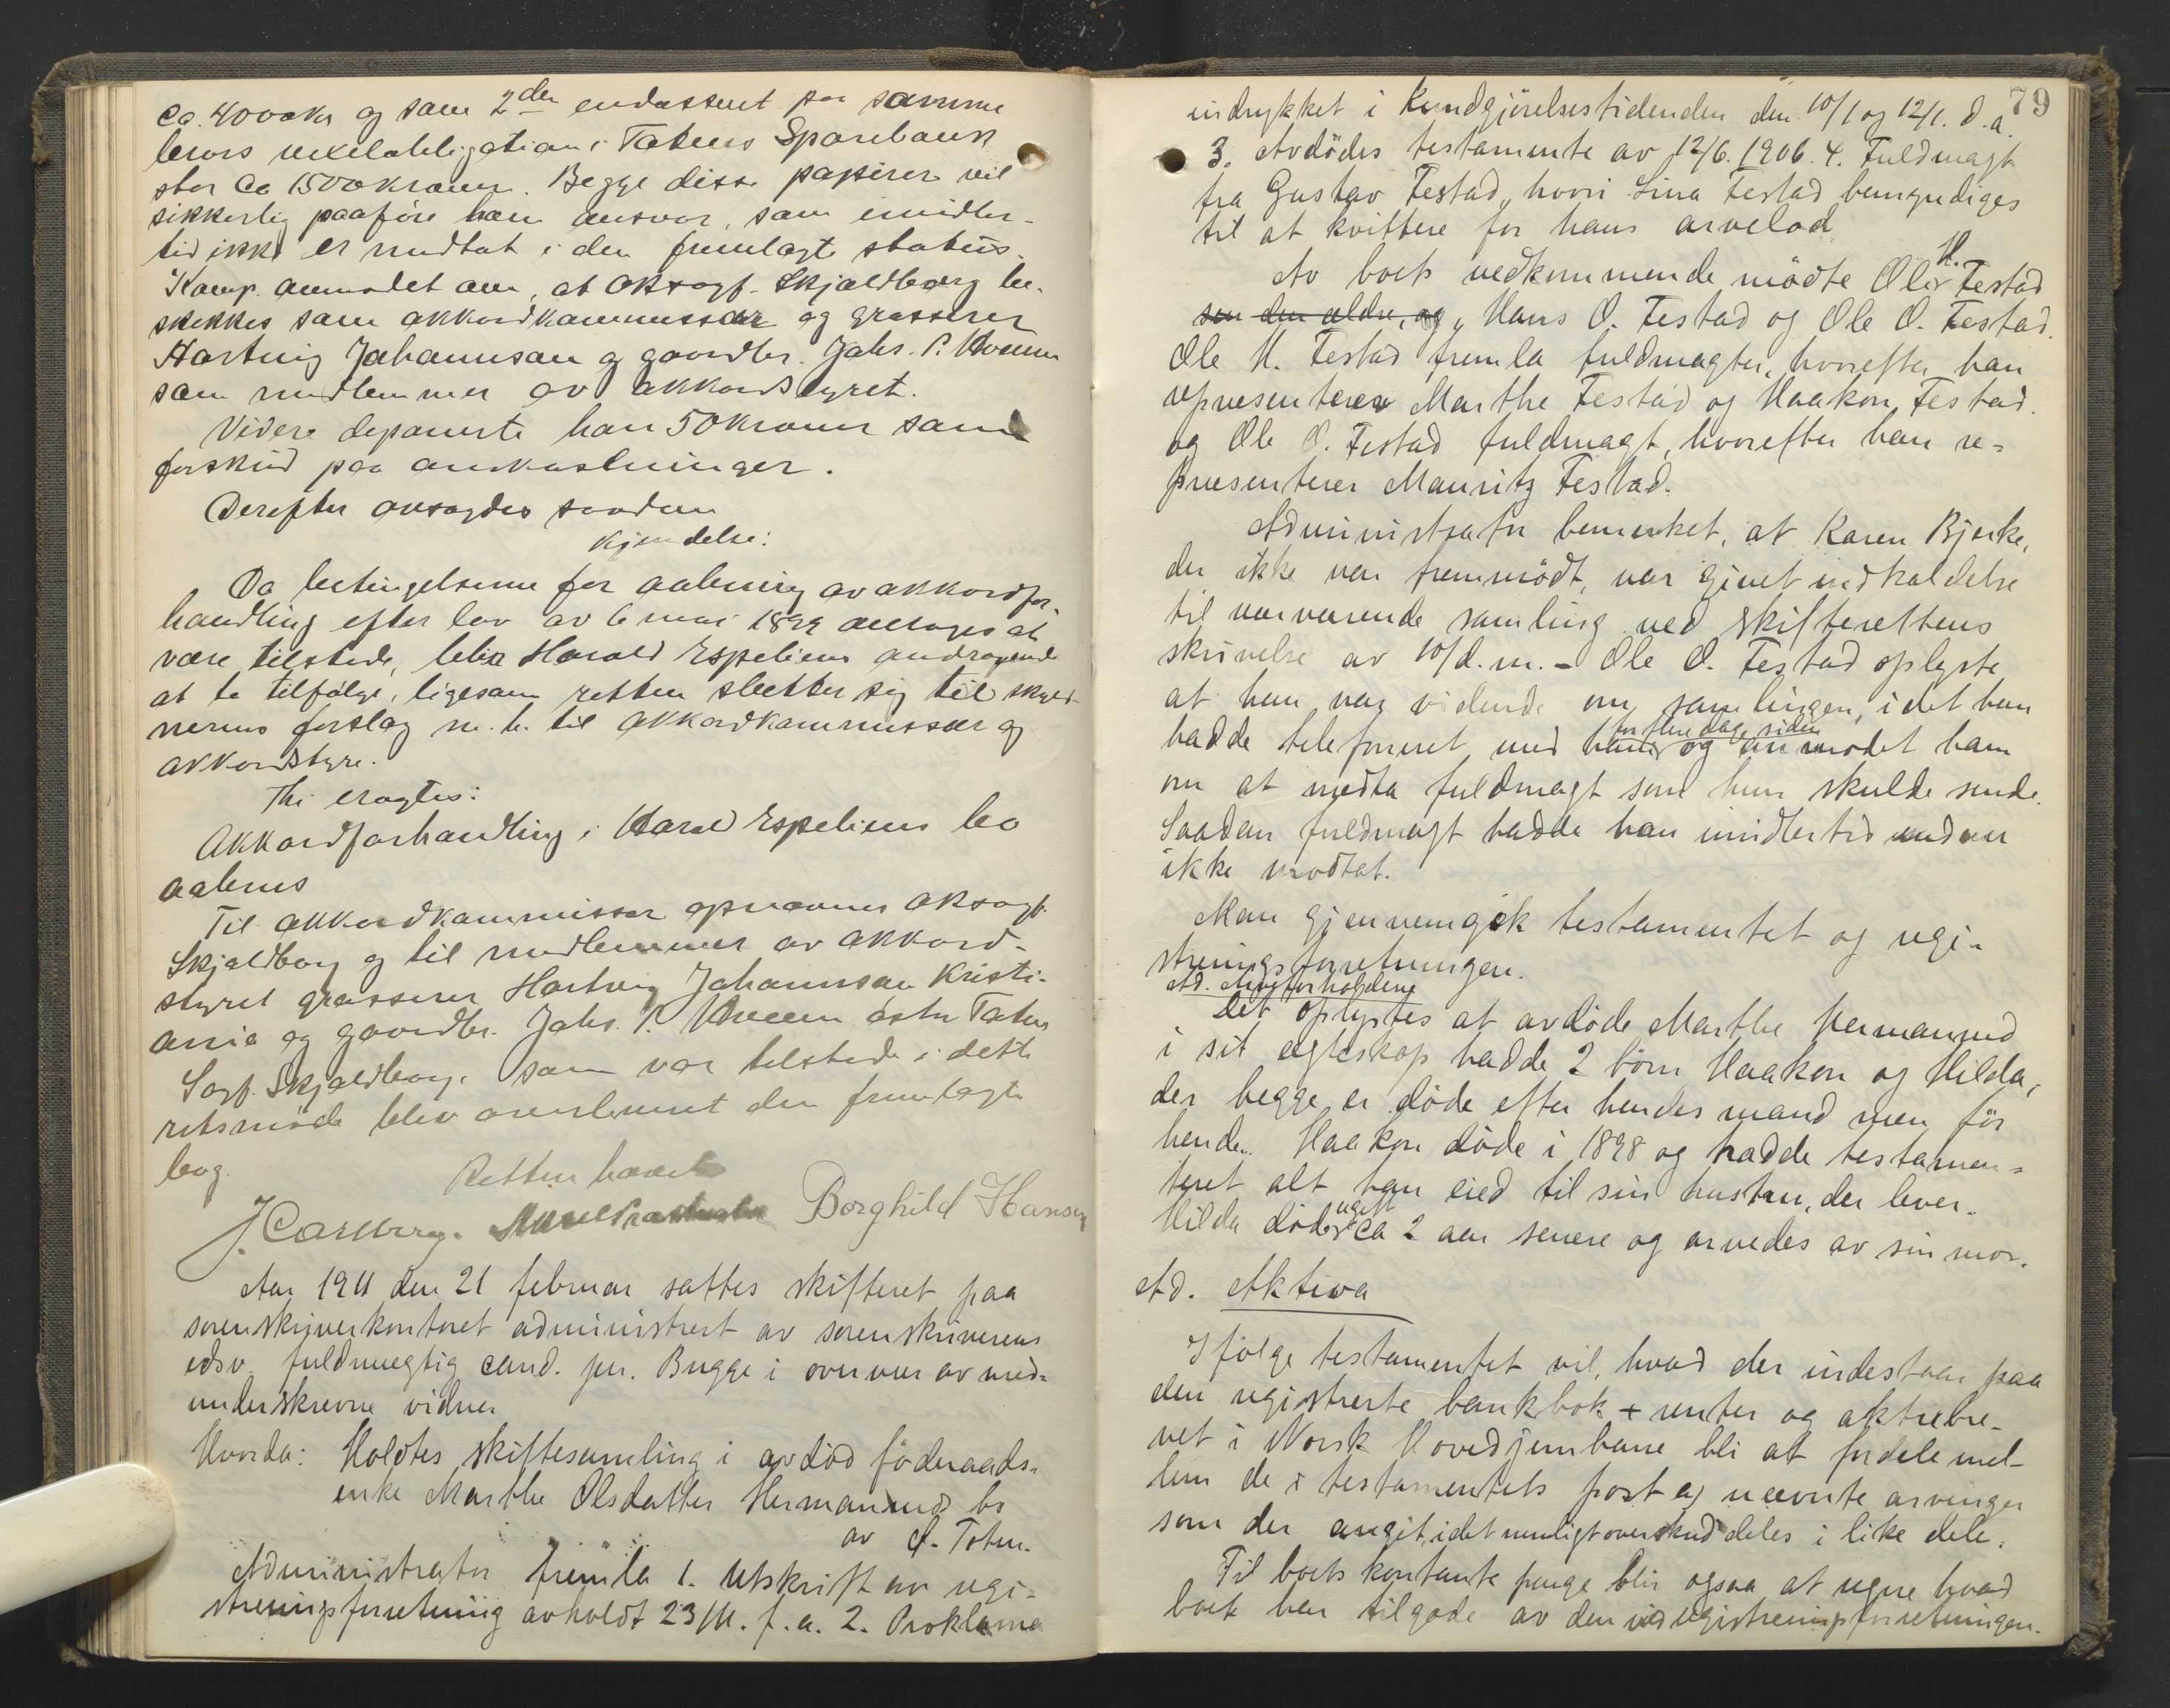 ca. 4000 kr og som 2den endossent paa samme
beløps vexelobligation i Totens Sparebank
stor ca 1500 kroner. Begge disse papirer vil
sikkerlig paaføre ham ansvar, som imidler-
tid ikke er medtat i den fremlagte status.
Komp. anmodet om, at ORsagf. Skjoldborg be-
skikkes som akkordkommissær og grosserer
Hartvig Johannson og gaardbr. Johs. P.
som medlemmer av akkordstyret.
Videre deponerte han 50 kroner som
forskud paa omkostninger.
Derefter avsagdes saadan
Kjendelse:
Da betingelserne for aabning av akkordfor-
handling efter lov av 6 mai 1899 antages at
være tilstede, blir Harald Espeliens andragende
at ta tilfølge, likesom retten slutter sig til skyld-
nerens forslag m. h. til akkordkommissær og
akkordstyre.
Thi eragtes:
Akkordforhandling i Harald Espeliens bo
aabnes
Til akkordkommissær opnævnes OKsagf.
Skjoldborg og til medlemmer av akkord-
styret grosserer Hartvig Johannson Kristi-
ania og gaardbr. Johs. P. østre Toten
Sagf. Skjoldborg, som var tilstede i dette
retsmøde blev overleveret den fremlagte
bog.
Retten hævet
J. Carlberg. Borghild Hansen
Aar 1911 den 21 februar sattes skifteret paa
sorenskriverkontoret administrert av sorenskriverens
edsv. fuldmægtig cand. jur. Bugge i overvær av med-
underskrevne vidner
Hvorda: Holdtes skiftesamling i avdød føderaads-
enke Marthe Olsdatter Hermanruds bo
av Ø. Toten.
Administrator fremla 1. Utskrift av regi-
streringsforretning avholdt 23/11. f. a. 2. Proklama
79
indrykket i Kundgjørelsestidenden den 10/1 og 12/1. d. a.
3. Avdødes testamente av 12/6. 1906. 4. Fuldmagt
fra Gustav Festad, hvori Lina Festad bemyndiges
til at kvittere for hans arvelod
Av boets vedkommende mødte Ole H. Festad
sen den ældre, og, Hans O. Festad og Ole O. Festad.
Ole H. Festad fremla fuldmagter, hvorefter han
representerer Marthe Festad og Haakon Festad.
og Ole O. Festad fuldmagt, hvorefter han re-
præsenterer Mauritz Festad.
Administrator bemerket, at Karen Bjerke,
der ikke var fremmødt, var givet indkaldelse
til nærværende samling ved skifterettens
skrivelse av 10/d. m. - Ole O. Festad oplyste
at hun var vidende om samlingen, idet hun
hadde telefonert med ham for flere dage siden og anmodet ham
om at medta fuldmagt som hun skulde sende.
Saadan fuldmagt hadde han imidlertid endnu
ikke modtat.
Man gjennemgik testamentet og regi-
streringsforretningen.
Ad. Arveforholdene
Det oplystes at avdøde Marthe Hermanrud
i sit egteskap hadde 2 børn Haakon og Hilda,
der begge er døde efter hendes mand men før
hende. Haakon døde i 1898 og hadde testamen-
teret alt han eied til sin hustru, der lever.
Hilda døde ugift ca 2 aar senere og arvedes av sin mor.
Ad. Aktiva
Ifølge testamentet vil, hvad der indestaar paa
den registrerte bankbok + renter og aktiebre-
vet i Norsk Hovedjernbane bli at fordele mel-
lem de i testamentets post a) nævnte arvinger
som der angit, idet muligt overskud deles i like dele.
Til boets kontante penge blir ogsaa at regne hvad
boet har tilgode av den ved registreringsforretningen.